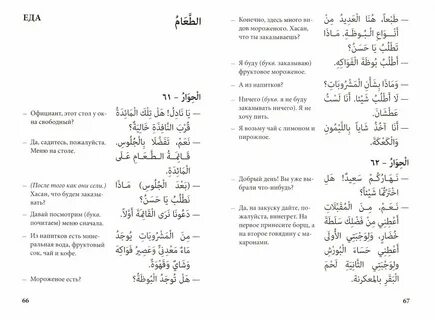 ЕДА
الطَّعَامُ
الْحِوَارُ – ٦١
– Официант, этот стол у ок-
на свободный?
– يَا نَادِلُ! هَلْ تِلْكَ الْمَائِدَةُ
قُرْبَ النَّافِذَةِ خَالِيَةٌ؟
– Да, садитесь, пожалуйста.
Меню на столе.
– نَعَمْ، تَفَضَّلْ بِالْجُلُوسِ.
قَائِمَةُ الطَّعَامِ عَلَى
الْمَائِدَةِ.
– (После того как они сели.)
Хасан, что будем заказы-
вать?
– (بَعْدَ الْجُلُوسِ) مَاذَا
نَطْلُبُ يَا حَسَنُ؟
– Давай посмотрим (букв.
почитаем) меню сначала.
– دَعُونَا نَرَى الْقَائِمَةَ أَوَّلًا.
– Из напитков есть мине-
ральная вода, фруктовый
сок, чай и кофе.
– مِنَ الْمَشْرُوبَاتِ يُوجَدُ
مَاءٌ مَعْدِنِيٌّ وَعَصِيرُ فَوَاكِهَ
وَشَايٌ وَقَهْوَةٌ.
– Мороженое есть?
– هَلْ تُوجَدُ الْبُوظَةُ؟
66
– Конечно, здесь много ви-
дов мороженого. Хасан,
что ты заказываешь?
– طَبْعاً، هُنَا الْعَدِيدُ مِنْ
أَنْوَاعِ الْبُوظَةِ. مَاذَا
تَطْلُبُ يَا حَسَنُ؟
– Я буду (букв. заказываю)
фруктовое мороженое.
– أَطْلُبُ بُوظَةَ الْفَوَاكِهِ.
– А из напитков?
– وَمَاذَا بِشَأْنِ الْمَشْرُوبَاتِ؟
– Ничего (букв. я не буду
заказывать ничего). Я не
хочу пить.
– لَا أَطْلُبُ شَيْئاً. أَنَا لَسْتُ
عَطْشَانَ.
– Я возьму чай с лимоном и
пирожное.
– أَنَا آخُذُ شَاياً بِاللَّيْمُونِ
وَالْكَعْكَةَ.
الْحِوَارُ – ٦٢
– Добрый день! Вы уже выбрали
что-нибудь?
– نَهَارُكُمْ سَعِيدٌ! هَلِ
اخْتَرْتُمَا شَيْئاً؟
– Да, на закуску дайте, по-
жалуйста, винегрет. На
первое принесите борщ, а
на второе говядину с ма-
каронами.
– نَعَمْ، مِنَ الْمُقَبِّلَاتِ
أَعْطِنِي مِنْ فَضْلِكَ سَلَطَةَ
خُضَارٍ، وَلِوَجْبَتِي الْأُولَى
أَعْطِنِي حَسَاءَ الْبُورْشِ
وَلِوَجْبَتِي الثَّانِيَةِ لَحْمَ
الْبَقَرِ بِالْمَعْكَرُونَةِ.
67